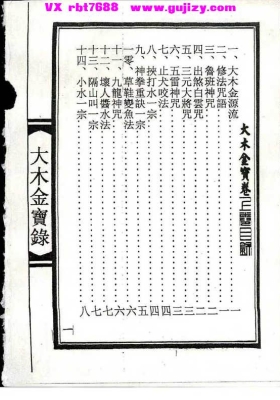 VX rbt7688 www.gujizy.com
大木金寶卷
一、大木金源流
二、修法咒語
三、魯班神咒
四、出煞白雲咒
五、三元大將咒
六、五雷神咒
七、止犬咬法
八、挾打水一宗
九、神拳重訣一宗
一零、草鞋變魚法
十一、九龍神咒
十二、壞人醬水法
十三、隔山叫一宗
十四、小水一宗
一
一
二
二
三
三
四
四
五
六
六
七
七
八
一
大木金寶錄